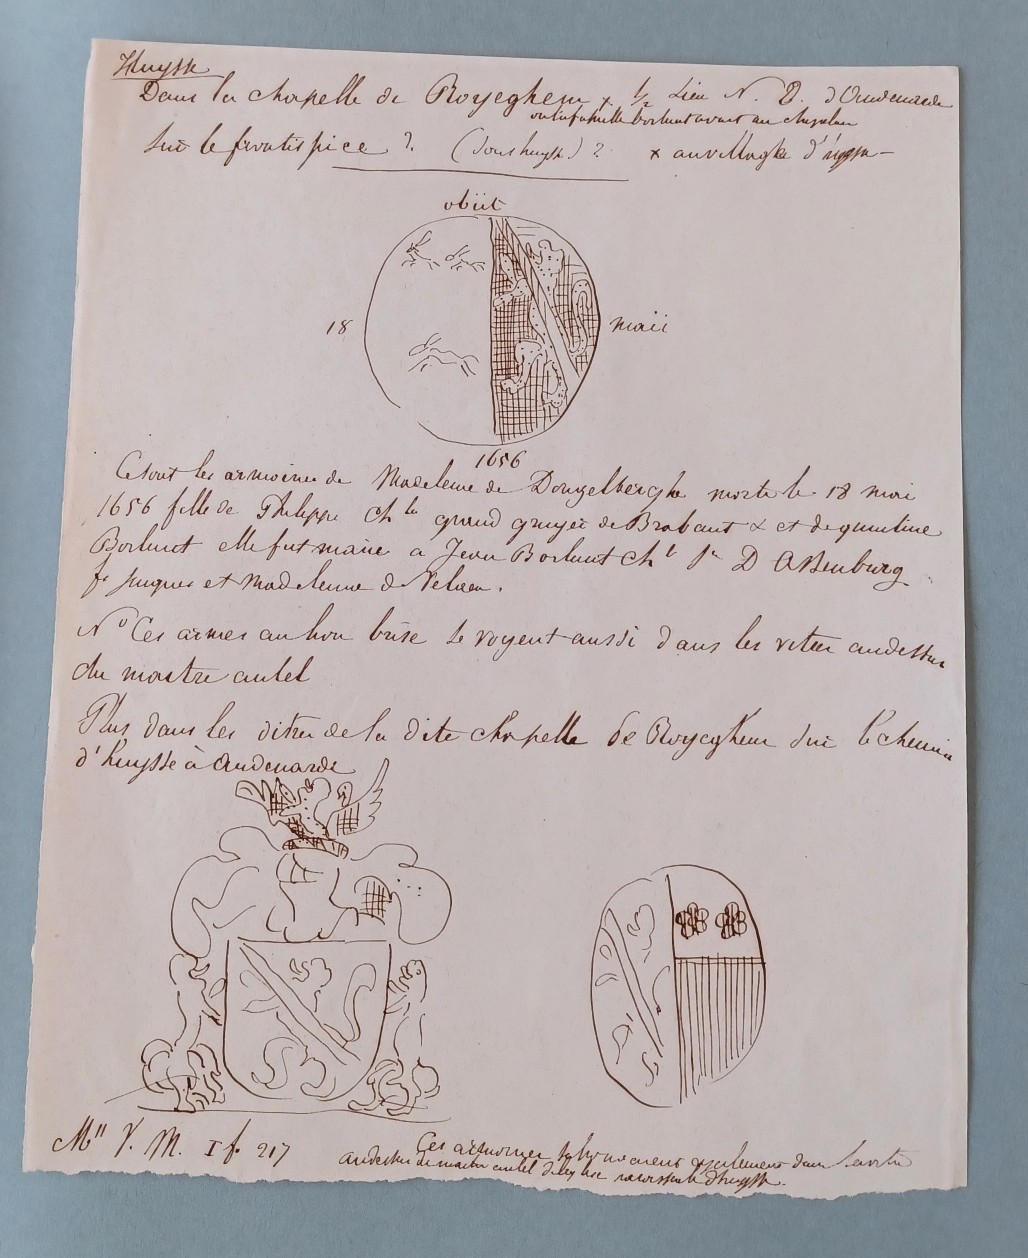 Huysse
Dans la chapelle de Royeghem x 1/2 Lieu N. D. d'Oudenarde
ou la famille Borluut avant un chapelain
Sur le frontispice ? (Sous huysse) ? x au village d'
obiit
18 maii
1656
Ce sont les armoiries de Madeleine de Dongelberghe morte le 18 mai
1656 fille de Philippe chlr grand gruyer de Brabant & et de quintine
Borluut elle fut mariée a Jean Borluut chlr Sr D
fs Jacques et Madeleine de Velaen.
No Ces armes au lion brise se voyent aussi dans les vitres audessus
du maitre autel
Plus dans les vitres de la dite chapelle de Royeghem sur le chemin
d'huysse à Audenarde
Mss V. M. I f. 217
Ces armoiries se trouvaient egalement dans la vitre
audessus du maitre autel de l'eglise paroissiale d'huysse.